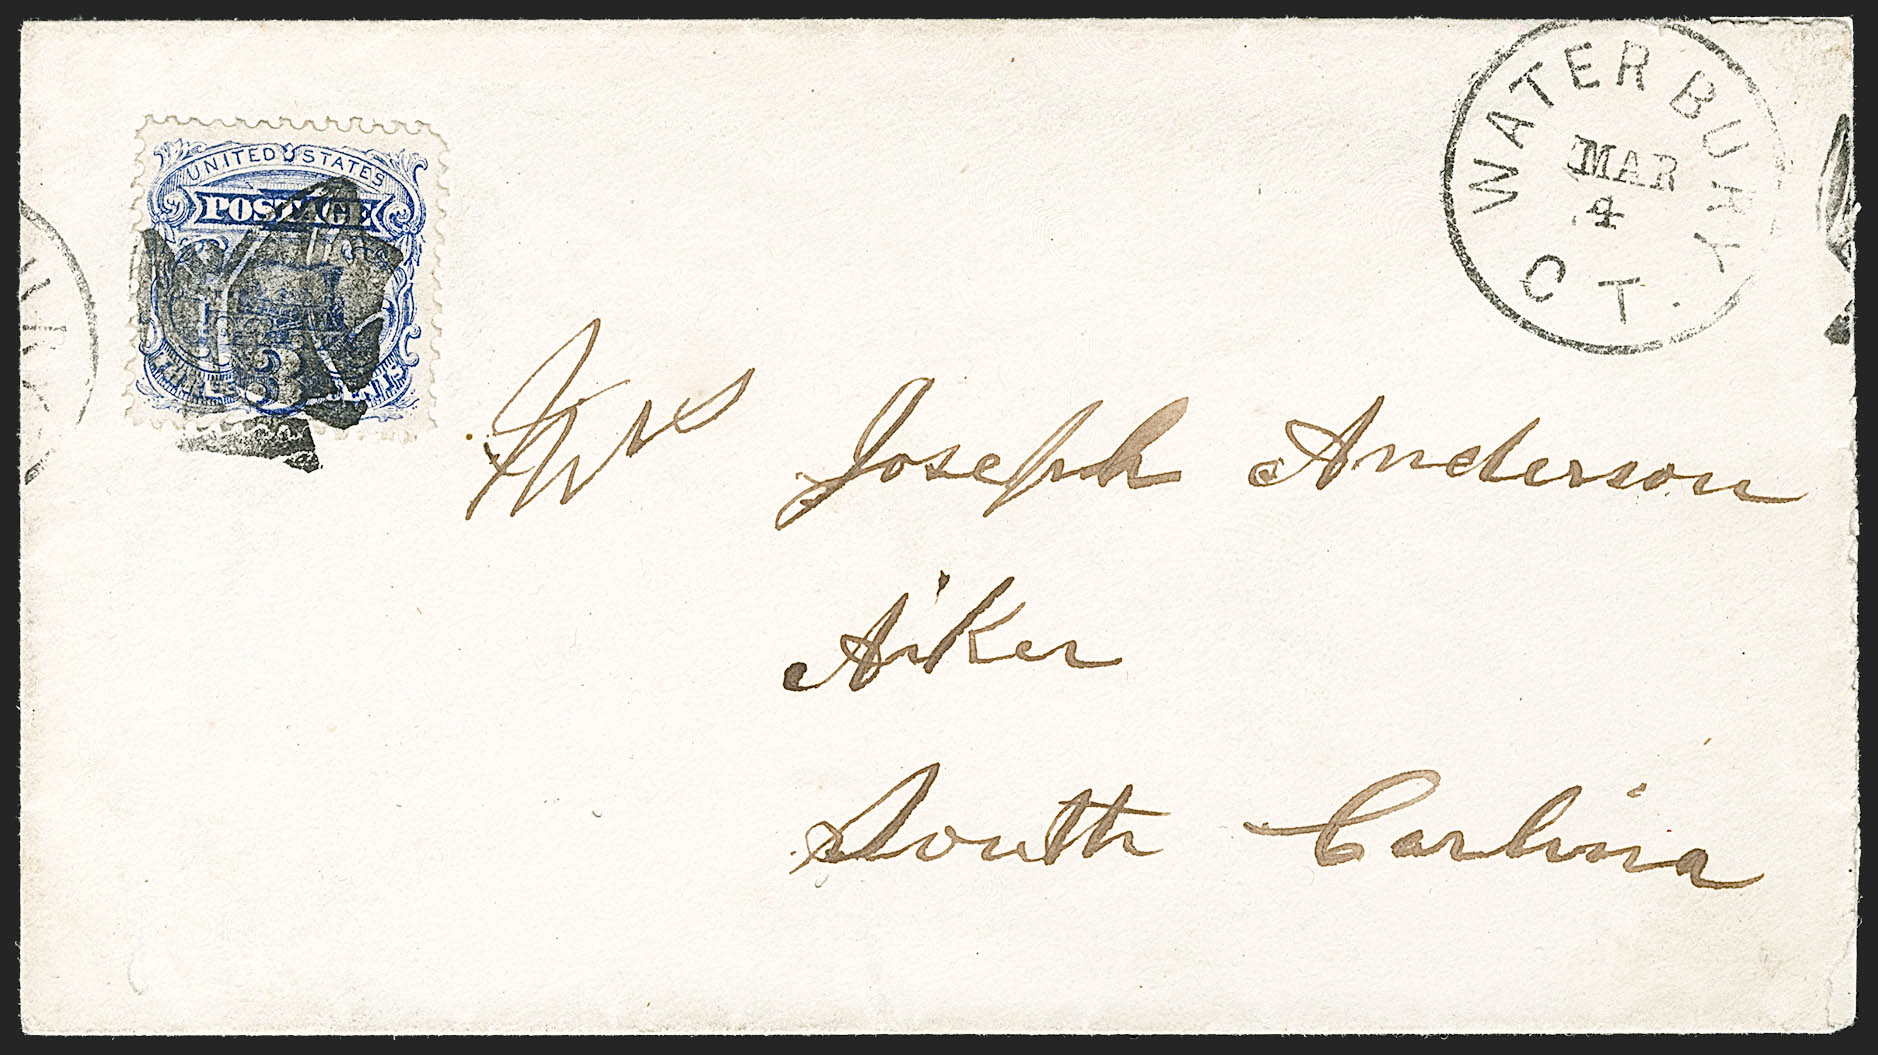 UNITED STATES
POSTAGE
3
WATERBURY
MAR
4
CT.
Mrs Joseph Anderson
Aiker
South Carlina